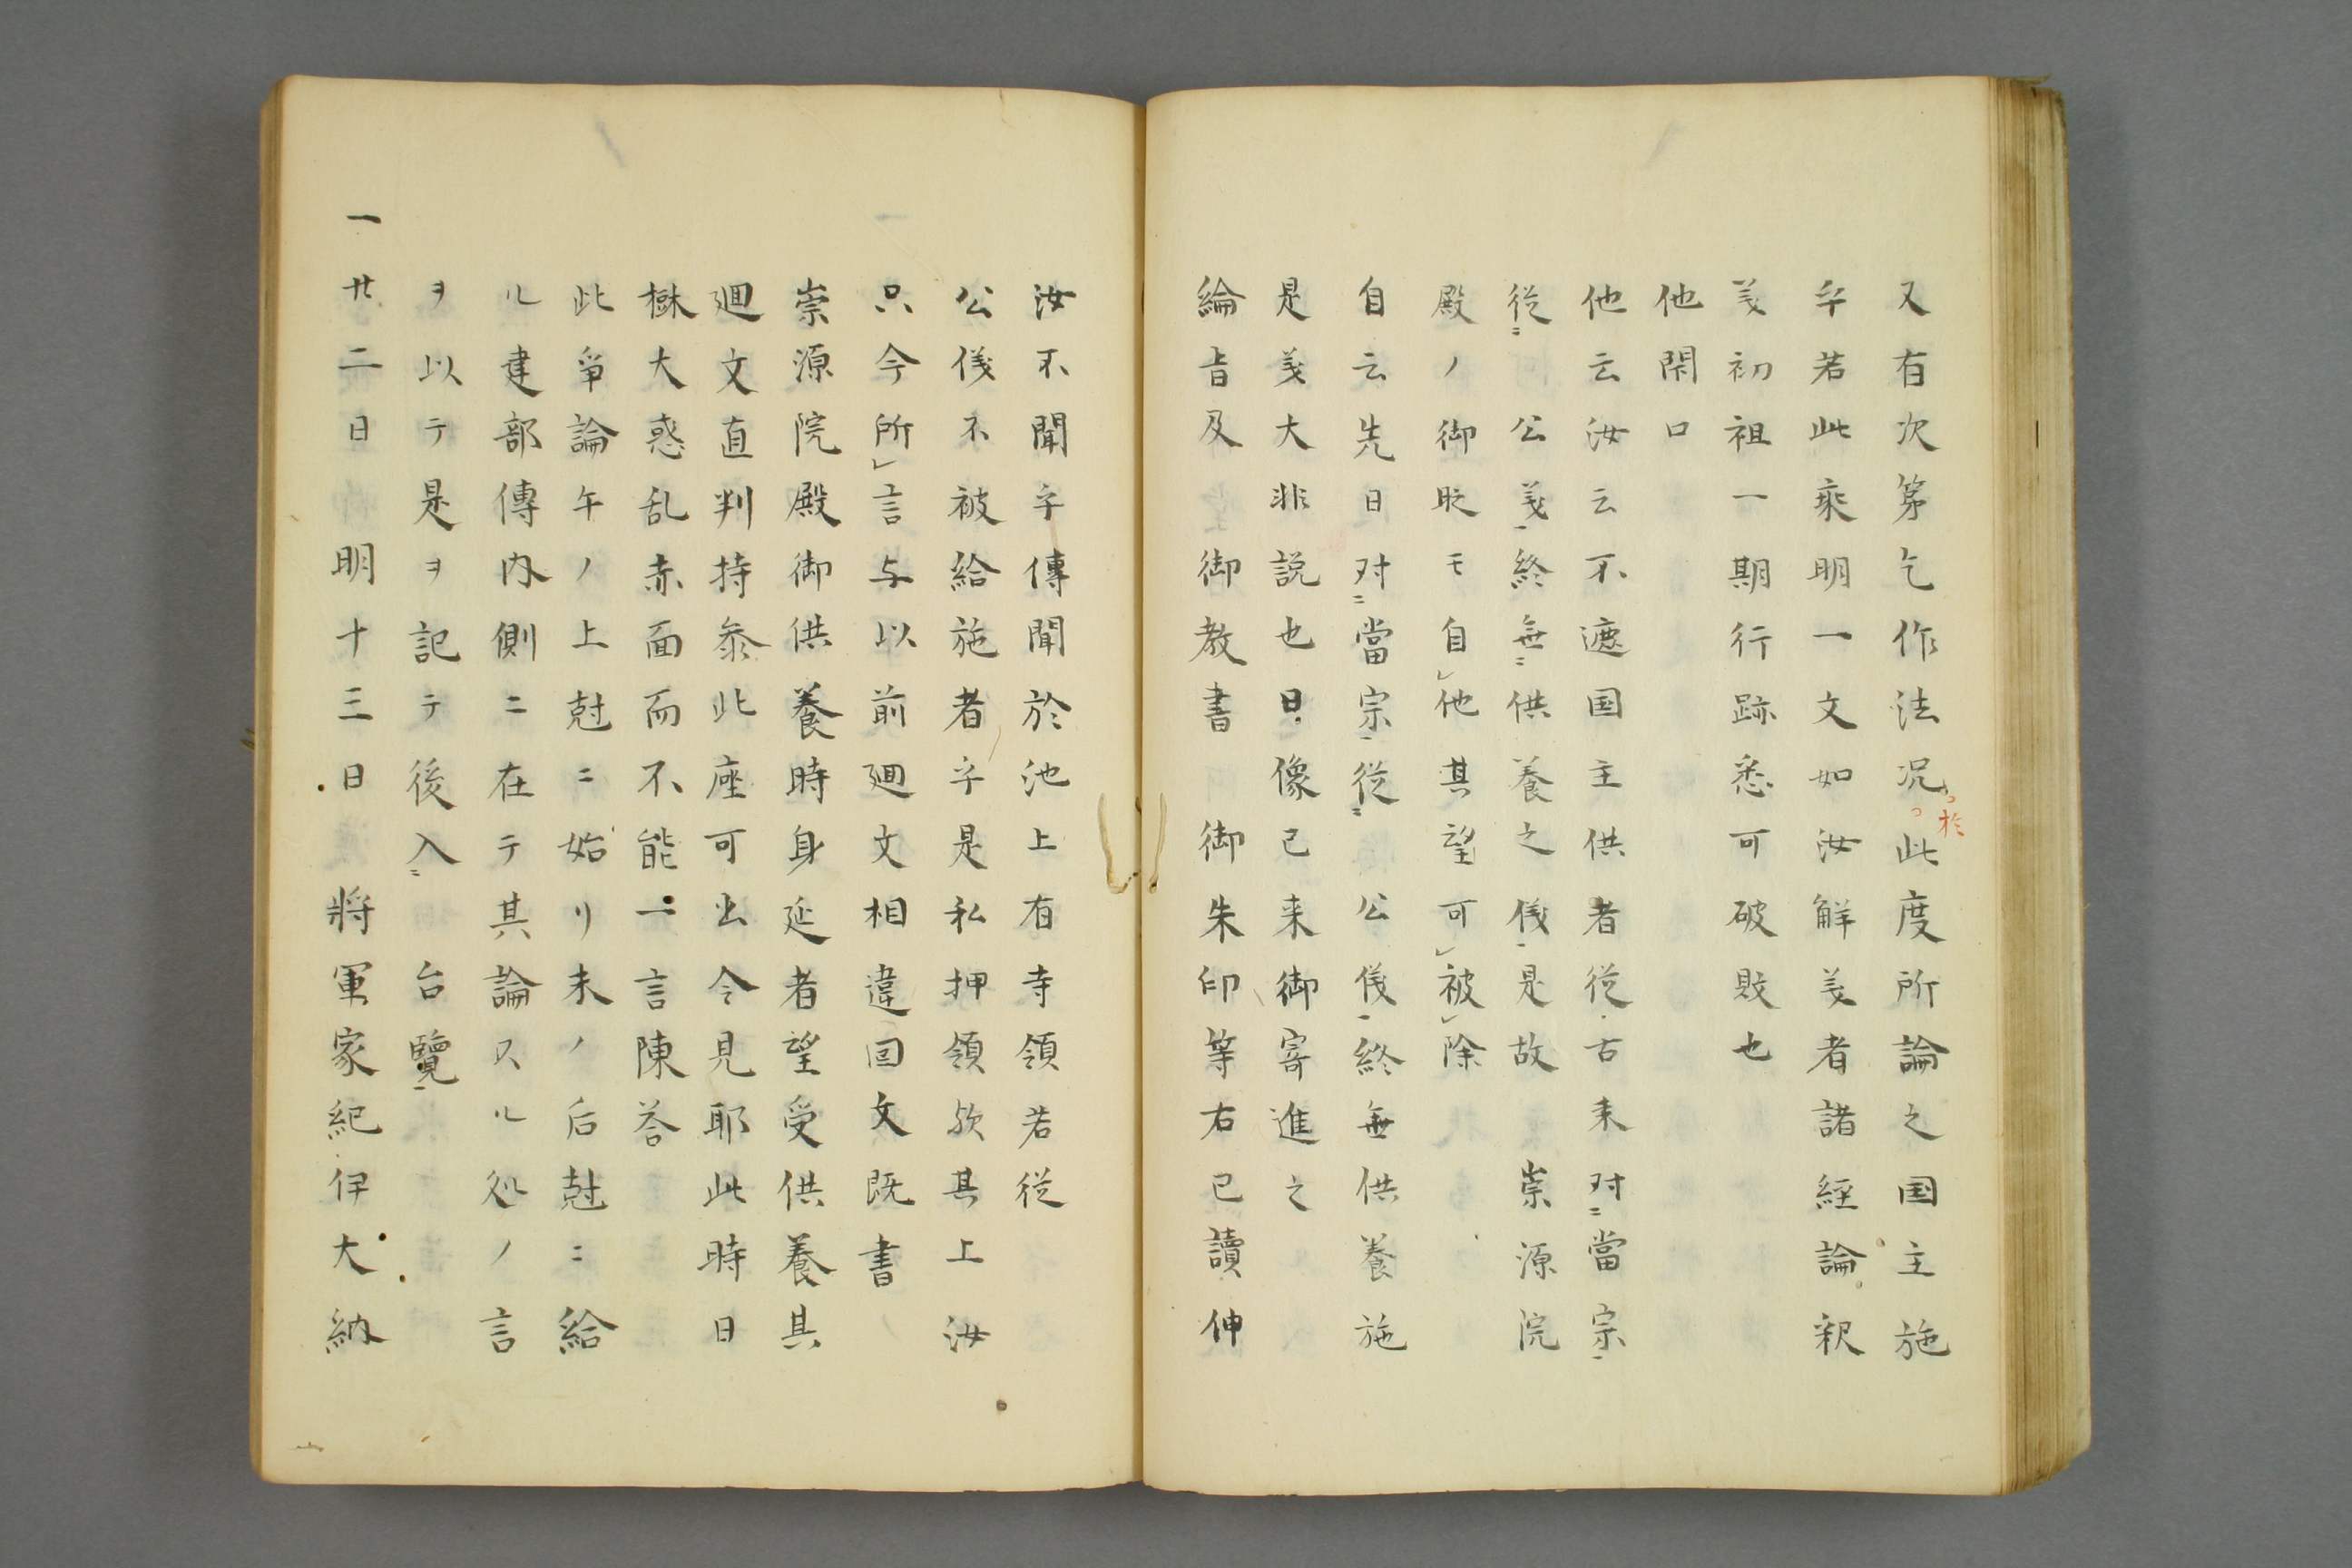 又有次第乞作法况於此度所論之国主施
乎若此乘明一文如汝解義者諸經論釈
義初祖一期行跡悉可破敗也
他閑口
他云汝云不遮国主供者従古来対ニ當宗
従ニ公義終無ニ供養之儀是故崇源院
殿ノ御時モ自他其望可被除
自云先日対ニ當宗従ニ公儀終無供養施
是義大非説也日像已来御寄進之
綸旨及御教書御朱印等右已讀伸
汝不聞乎傳聞於池上有寺領若従
公儀不被給施者乎是私押領歟其上汝
只今所言与以前廻文相違回文既書
崇源院殿御供養時身延者望受供養其
廻文直判持参此座可出令見耶此時日
樹大惑乱赤面而不能一言陳答
此爭論午ノ上尅ニ始リ未ノ后尅ニ給
ル建部傳内側ニ在テ其論スル処ノ言
ヲ以テ是ヲ記テ後入ニ台覽
一廿二日明十三日将軍家紀伊大納